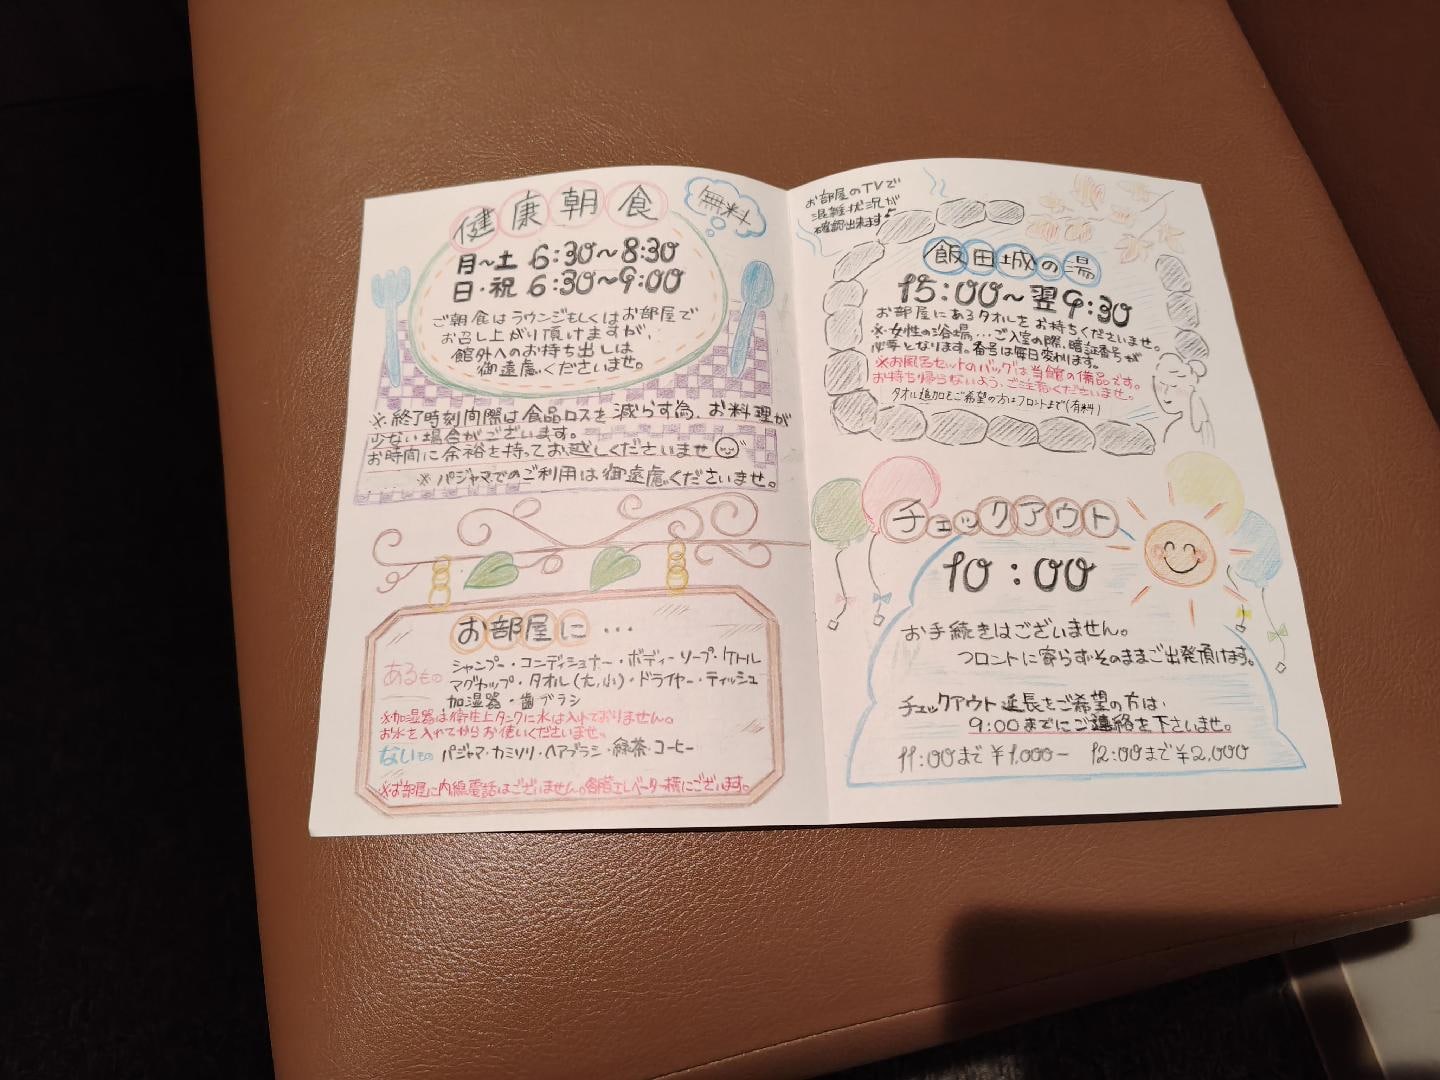 健康朝食
無料
月～土 6:30～8:30
日・祝 6:30～9:00
ご朝食はラウンジもしくはお部屋で
お召し上がり頂けますが、
館外へのお持ち出しは
御遠慮くださいませ。
※終了時刻間際は食品ロスを減らす為、お料理が
少ない場合がございます。
お時間に余裕を持ってお越しくださいませ
※パジャマでのご利用は御遠慮くださいませ。
お部屋に…
あるもの
シャンプー・コンディショナー・ボディーソープ・ケトル
マグカップ・タオル(大,小)・ドライヤー・ティッシュ
加湿器・歯ブラシ
※加湿器は衛生上タンクに水は入れておりません。
お水を入れてからお使いくださいませ。
ないもの パジャマ・カミソリ・ヘアブラシ・緑茶・コーヒー
※お部屋に内線電話はございません。各階エレベーター横にございます。
お部屋のTVで
混雑状況が
確認出来ます♪
飯田城の湯
15:00～翌9:30
お部屋にあるタオルをお持ちくださいませ。
※女性の浴場…ご入室の際、暗証番号が
必要となります。番号は毎日変わります。
※お風呂セットのバッグは当館の備品です。
お持ち帰らないよう、ご注意くださいませ。
タオル追加をご希望の方はフロントまで(有料)
チェックアウト
10:00
お手続きはございません。
フロントに寄らずそのままご出発頂けます。
チェックアウト延長をご希望の方は、
9:00までにご連絡を下さいませ。
11:00まで¥1,000- 12:00まで¥2,000